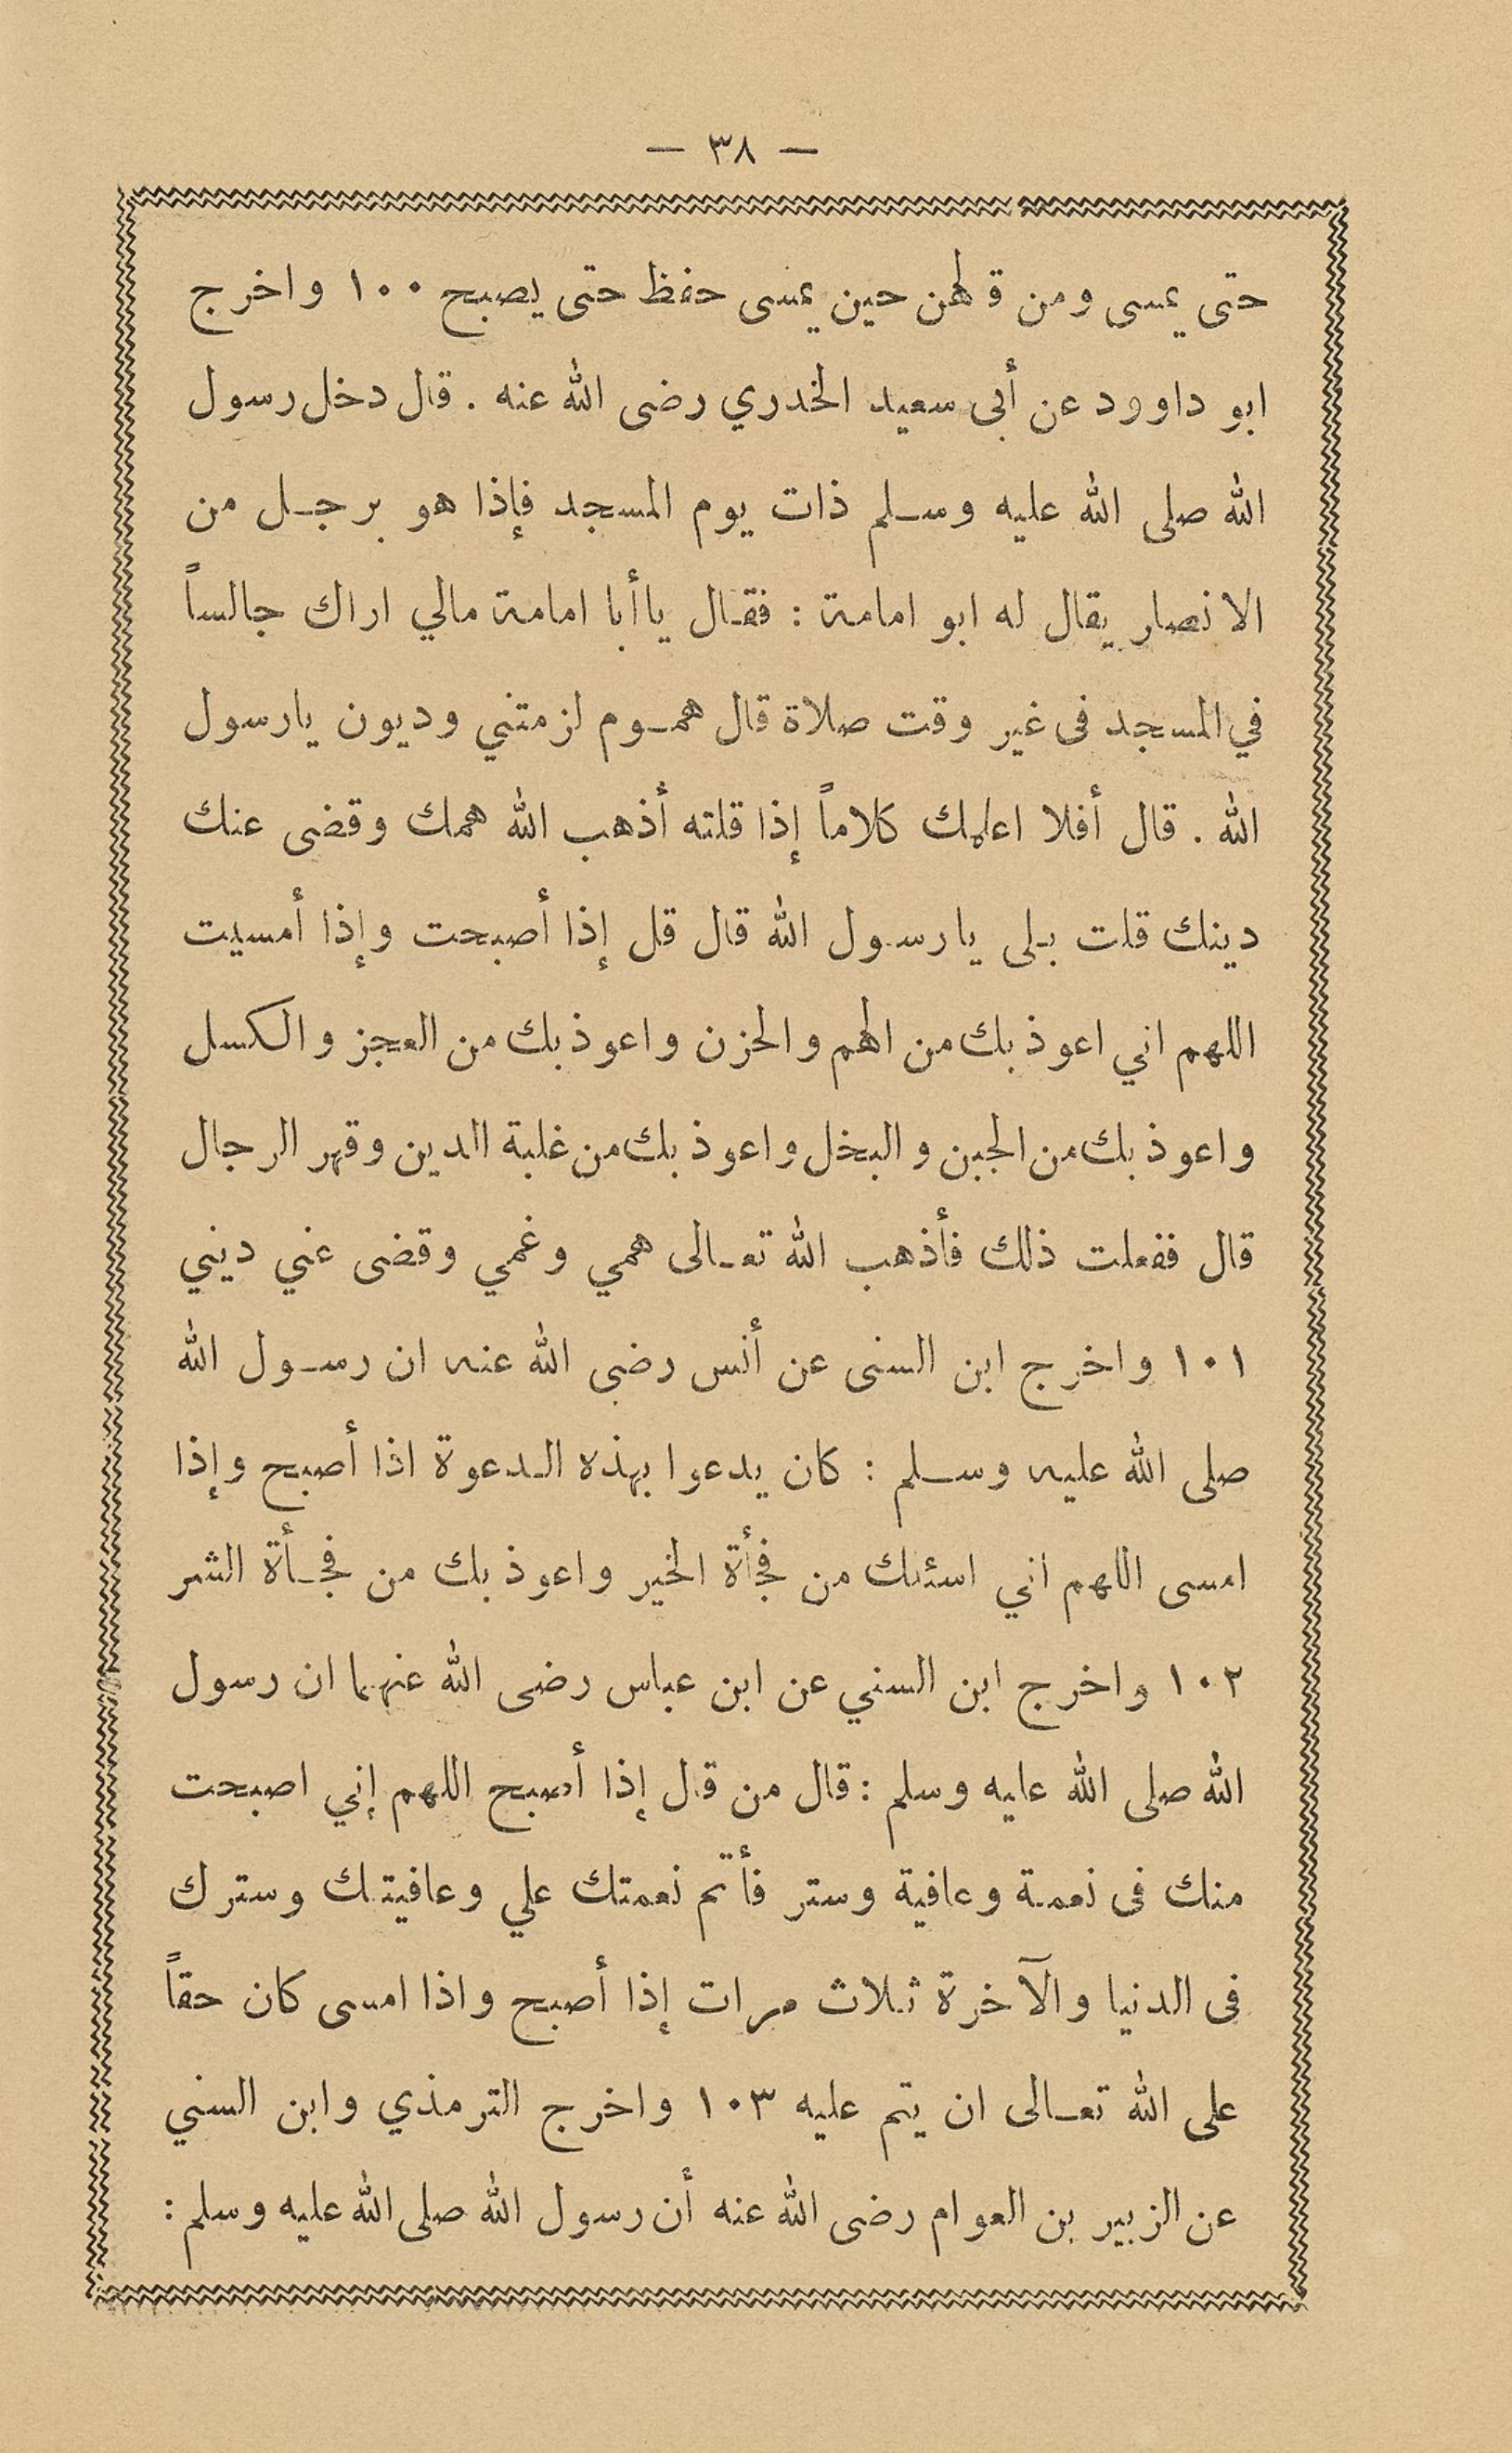 — ٣٨ —
حتى يمسى ومن قالهن حين يمسى حفظ حتى يصبح ١٠٠ واخرج
ابو داوود عن أبى سعيد الخدري رضى الله عنه . قال دخل رسول
الله صلى الله عليه وسلم ذات يوم المسجد فإذا هو برجل من
الانصار يقال له ابو امامة : فقال ياأبا امامة مالي اراك جالساً
في المسجد فى غير وقت صلاة قال هموم لزمتني وديون يارسول
الله . قال أفلا اعلمك كلاماً إذا قلته أذهب الله همك وقضى عنك
دينك قلت بلى يارسول الله قال قل إذا أصبحت وإذا أمسيت
اللهم اني اعوذ بك من الهم والحزن واعوذ بك من العجز والكسل
واعوذ بك من الجبن والبخل واعوذ بك من غلبة الدين وقهر الرجال
قال ففعلت ذلك فأذهب الله تعالى همي وغمي وقضى عني ديني
١٠١ واخرج ابن السنى عن أنس رضى الله عنه ان رسول الله
صلى الله عليه وسلم : كان يدعوا بهذه الدعوة اذا أصبح وإذا
امسى اللهم اني اسئلك من فجأة الخير واعوذ بك من فجأة الشر
١٠٢ واخرج ابن السني عن ابن عباس رضى الله عنهما ان رسول
الله صلى الله عليه وسلم : قال من قال إذا أصبح اللهم إني اصبحت
منك فى نعمة وعافية وستر فأتم نعمتك علي وعافيتك وسترك
فى الدنيا والآخرة ثلاث مرات إذا أصبح واذا امسى كان حقاً
على الله تعالى ان يتم عليه ١٠٣ واخرج الترمذي وابن السني
عن الزبير بن العوام رضى الله عنه أن رسول الله صلى الله عليه وسلم :